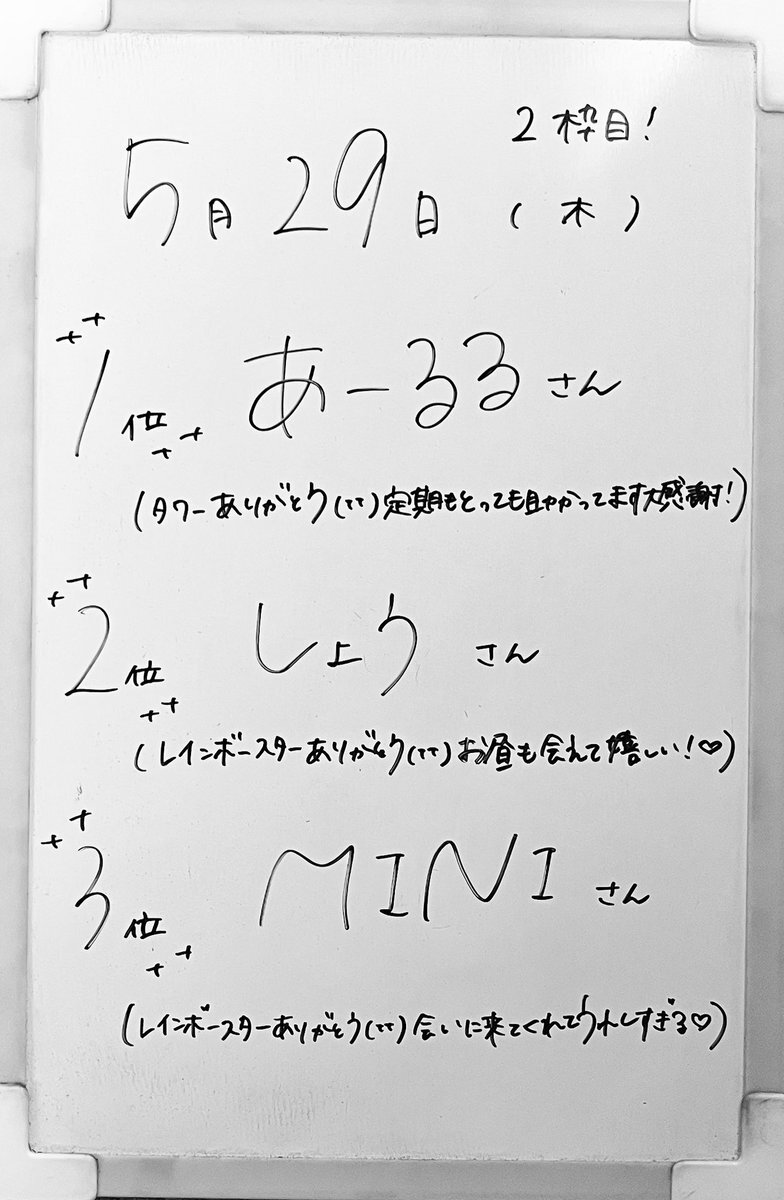 2枠目!
5月29日(木)
1位 あーるるさん
(タワーありがとう(TT)定期もとっても助かってます大感謝!)
2位 しょうさん
(レインボースターありがとう(TT)お昼も会えて嬉しい!♡)
3位 MINIさん
(レインボースターありがとう(TT)会いに来てくれてうれしすぎる♡)